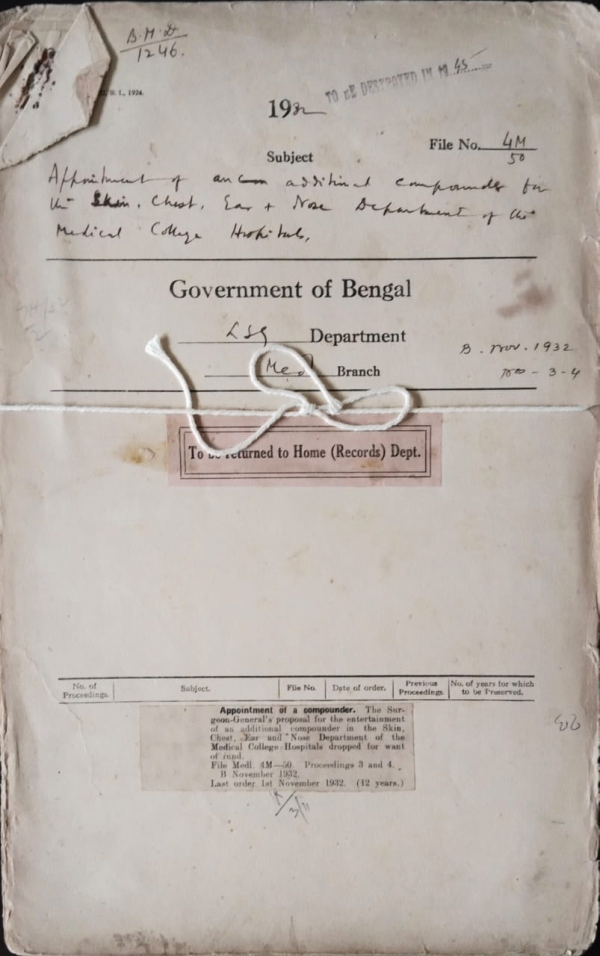 B.M.D.
1246.
1., 1924.
TO BE DESTROYED IN 19 45
1932
File No. 4M
50
Subject
Appointment of an additional compounder for
the Skin, Chest, Ear + Nose Department of the
Medical College Hospitals,
Government of Bengal
LSG Department
Med Branch
B. Nov. 1932
3-4
To be returned to Home (Records) Dept.
No. of Proceedings. Subject. File No. Date of order. Previous Proceedings. No. of years for which to be Preserved.
Appointment of a compounder. The Sur-
geon-General's proposal for the entertainment
of an additional compounder in the Skin,
Chest, Ear and Nose Department of the
Medical College Hospitals dropped for want
of fund.
File Medl. 4M—50. Proceedings 3 and 4.
B November 1932.
Last order 1st November 1932. (12 years.)